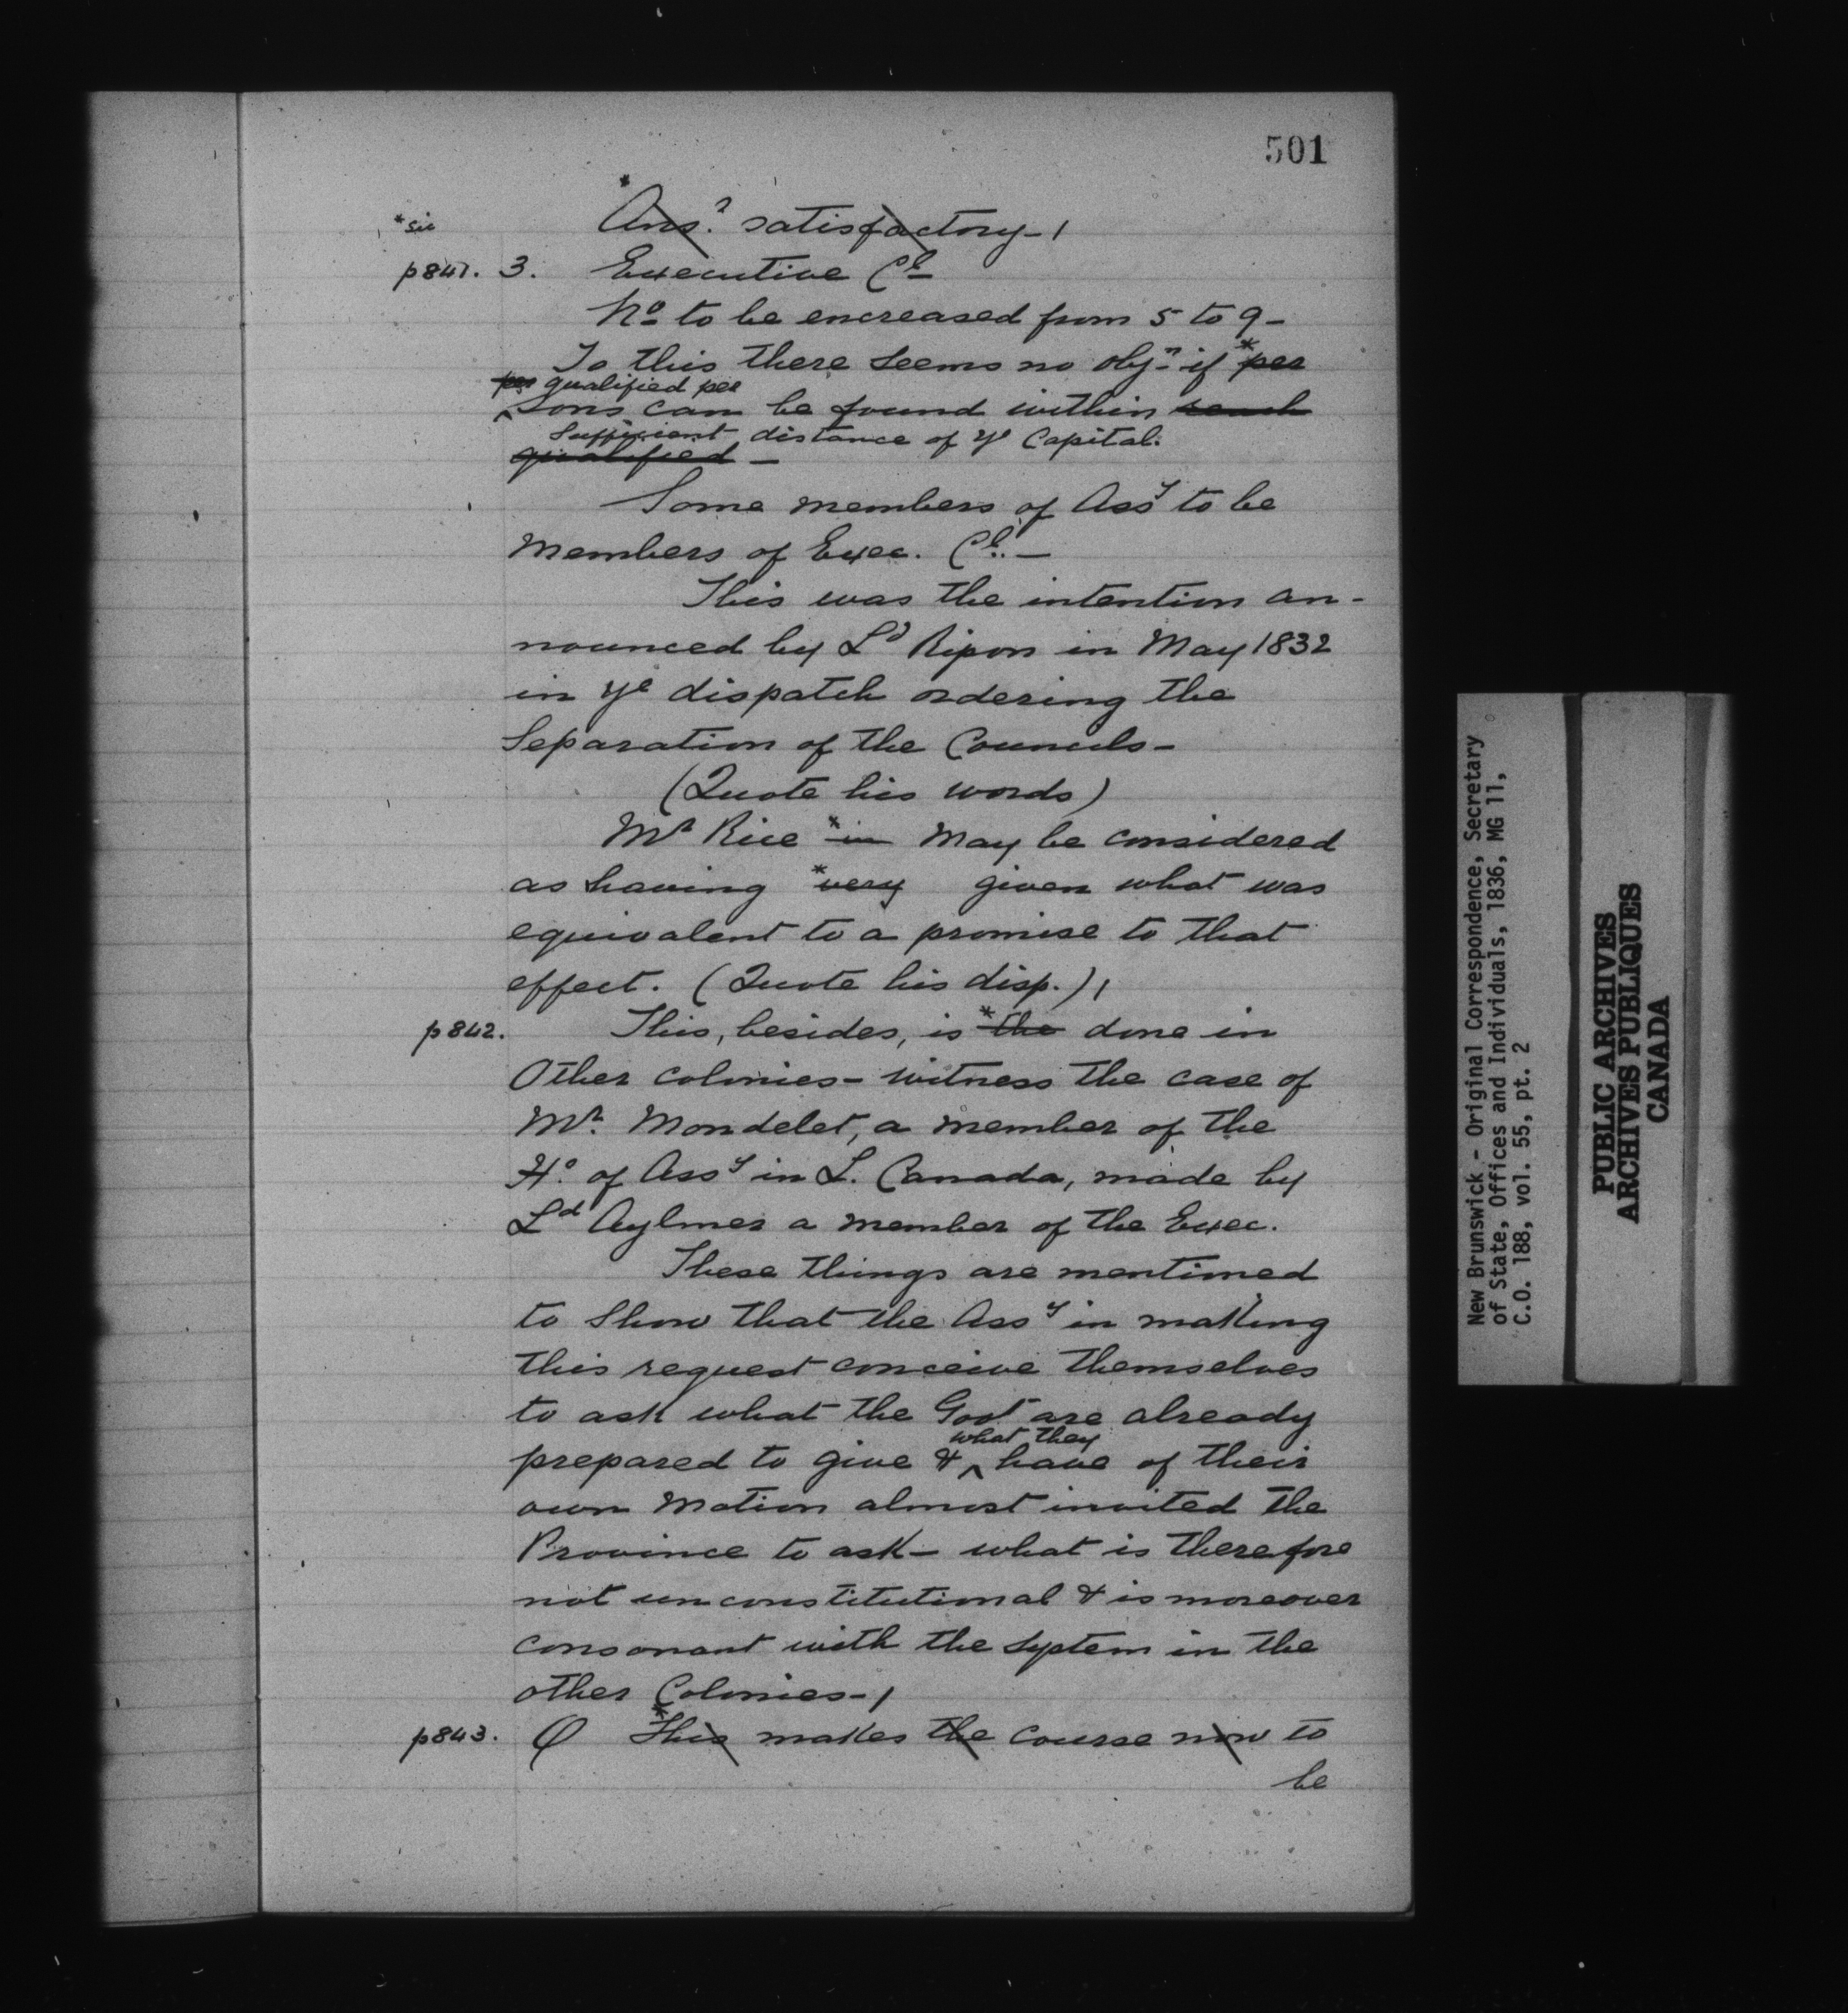 501
*sic
*Ansr. satisfactory-/
p841. 3. Executive Cl
No to be encreased from 5 to 9-
To this there seems no objn if *per
per qualified per
sons can be found within reach
Sufficient distance of ye Capital.
qualified -
Some members of Assy to be
members of Exec. Cl. -
This was the intention an-
nounced by Ld Ripon in May 1832
in ye dispatch ordering the
Separation of the Councils-
(Quote his words)
Mr Rice *in may be considered
as having *very given what was
equivalent to a promise to that
effect. (Quote his disp.)/
p842. This, besides, is *the done in
Other colonies - witness the case of
Mr. Mondelet, a member of the
Ho. of Assy in L. Canada, made by
Ld Aylmer a member of the Exec.
These things are mentioned
to Show that the Assy in making
this request conceive themselves
to ask what the Govt are already
what they
prepared to give & ^ have of their
own motion almost invited the
Province to ask - what is therefore
not unconstitutional & is moreover
consonant with the System in the
other Colonies-/
p843. Q *This makes the course now to
be
New Brunswick - Original Correspondence, Secretary
of State, Offices and Individuals, 1836, MG 11,
C.O. 188, vol. 55, pt. 2
PUBLIC ARCHIVES
ARCHIVES PUBLIQUES
CANADA